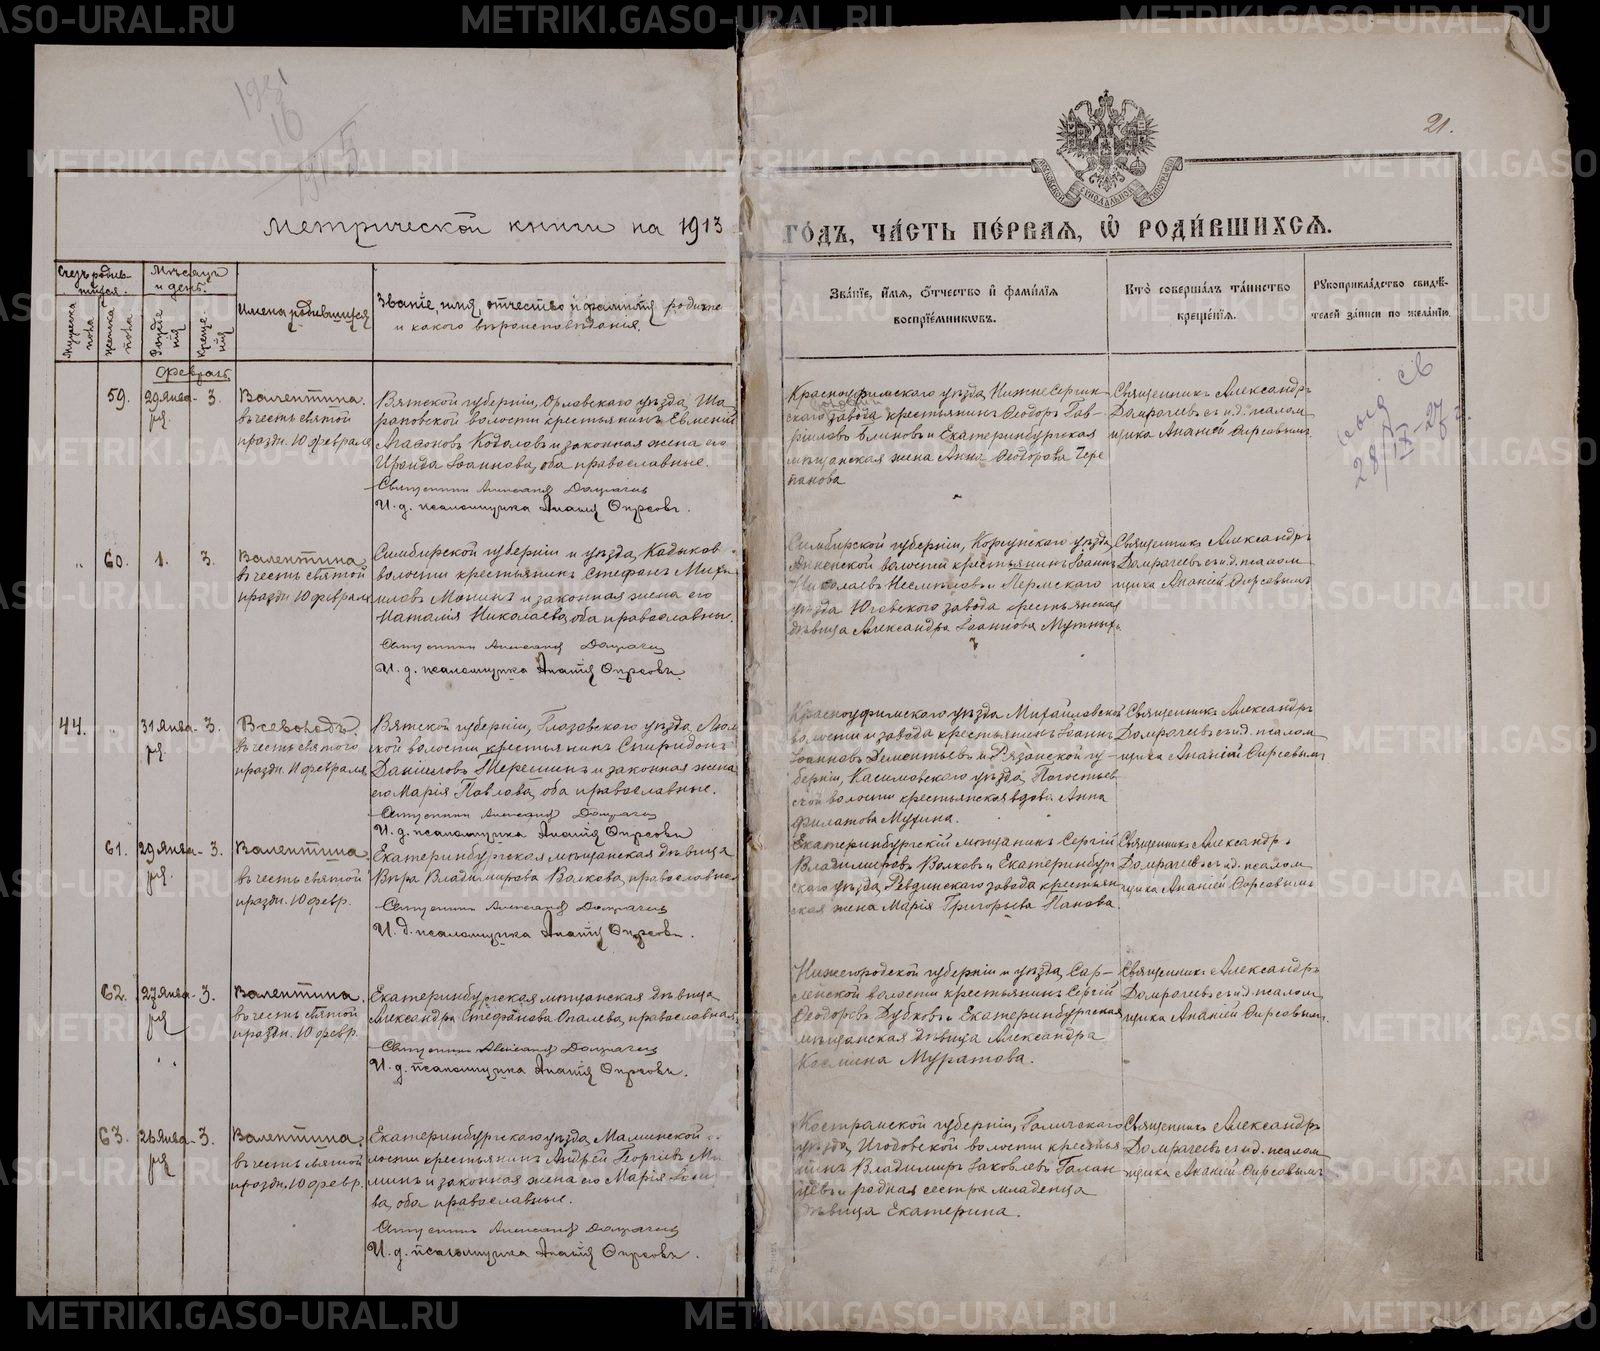 21.
Метрической книги на 1913
го́дъ, ча́сть пе́рвая, ѡ҆ роди́вшихсѧ.
Счетъ родив-
шихся.
Мужеска
пола
Женска
пола
Мѣсяцъ
и день.
Рожде
нія
Креще-
нія
Имена родившихся
Званіе, имя, отчество и фамилія родите
и какого вѣроисповѣданія.
Зва́нїе, и҆́мѧ, ѻ҆́тчество и҆ фами́лїѧ
воспрїе́мникѡвъ.
Кто̀ соверша́лъ та́инство
креще́нїѧ.
Рꙋкоприкла́дство свидѣ́-
телей за́писи по жела́нїю.
Февраль
59.
29 Янва-
ря.
3.
Валентина.
въ честь святой
праздн. 10 февраля
Вятской губерніи, Орловскаго уѣзда, Ша
рановской волости крестьянинъ Евмений
Агафоновъ Кодоловъ и законная жена его
Ираида Іоаннова, оба православные.
Священникъ Александръ Домрачевъ
И. д. псаломщика Ананій Фирсовъ.
Красноуфимскаго уѣзда, Нижне Сергин-
скаго завода крестьянинъ Ѳеодоръ Гав-
риловъ Блиновъ и Екатеринбургская
мѣщанская жена Анна Ѳеодорова Чере
панова
Священникъ Александръ
Домрачевъ съ и.д. псалом
щика Ананіей Фирсовымъ
28/IX-27
60.
1.
3.
Валентина.
въ честь святой
праздн. 10 февраля
Симбирской губерніи и уѣзда, Кадыков
волости крестьянинъ Стефанъ Миха
иловъ Монинъ и законная жена его
Наталія Николаева, оба православны.
Священникъ Александръ Домрачевъ
И. д. псаломщика Ананій Фирсовъ.
Симбирской губерніи, Корсунскаго уѣзда,
волости крестьянинъ Іоаннъ
Николаевъ Несмѣловъ и Пермскаго
уѣзда Юговскаго завода крестьянская
дѣвица Александра Іоаннова Мутныхъ
Священникъ Александръ
Домрачевъ съ и.д. псалом
щика Ананіей Фирсовымъ
44.
31 Янва-
ря
3.
Всеволодъ.
въ честь святого
праздн. 11 февраля
Вятской губерніи, Глазовскаго уѣзда, Люм
ской волости крестьянинъ Спиридонъ
Даніиловъ Терешинъ и законная жена
его Марія Павлова, оба православные.
Священникъ Александръ Домрачевъ
И. д. псаломщика Ананій Фирсовъ
Красноуфимскаго уѣзда Михайловской
волости и завода крестьянинъ Іоаннъ
Іоанновъ Дементьевъ и Рязанской гу-
берніи, Касимовскаго уѣзда, Погостьев
ской волости крестьянская вдова Анна
Филатова Мухина.
Священникъ Александръ
Домрачевъ съ и.д. псалом
щика Ананіей Фирсовымъ
61.
29 Янва-
ря.
3.
Валентина.
въ честь святой
праздн. 10 февр.
Екатеринбургская мѣщанская дѣвица
Вѣра Владимирова Волкова, православная
Священникъ Александръ Домрачевъ
И. д. псаломщика Ананій Фирсовъ.
Екатеринбургскій мѣщанинъ Сергій
Владимировъ Волковъ и Екатеринбург
скаго уѣзда, Ревдинскаго завода крестьян
ская жена Марія Григорьева Панова.
Священникъ Александръ
Домрачевъ съ и.д. псалом
щика Ананіей Фирсовымъ
62.
27 Янва-
ря
3.
Валентина.
въ честь святой
праздн. 10 февр.
Екатеринбургская мѣщанская дѣвица
Александра Стефанова Опалева, православная
Священникъ Александръ Домрачевъ
И. д. псаломщика Ананій Фирсовъ.
Нижегородской губерніи и уѣзда, Сар-
лейской волости крестьянинъ Сергій
Ѳеодоровъ Дубковъ и Екатеринбургская
мѣщанская дѣвица Александра
Косьмина Муратова.
Священникъ Александръ
Домрачевъ съ и.д. псалом
щика Ананіей Фирсовымъ.
63.
26 Янва-
ря
3.
Валентина.
въ честь святой
праздн. 10 февр.
Екатеринбургскаго уѣзда, Маминской
лости крестьянинъ Андрей Георгіевъ Ма
минъ и законная жена его Марія
ва, оба православные.
Священникъ Александръ Домрачевъ
И. д. псаломщика Ананій Фирсовъ.
Костромской губерніи, Галичскаго
уѣзда, Игодовской волости крестья
нинъ Владимиръ Іаковлевъ Галан
цевъ и родная сестра младенца
дѣвица Екатерина.
Священникъ Александръ
Домрачевъ съ и.д. псалом
щика Ананіей Фирсовымъ
METRIKI.GASO-URAL.RU